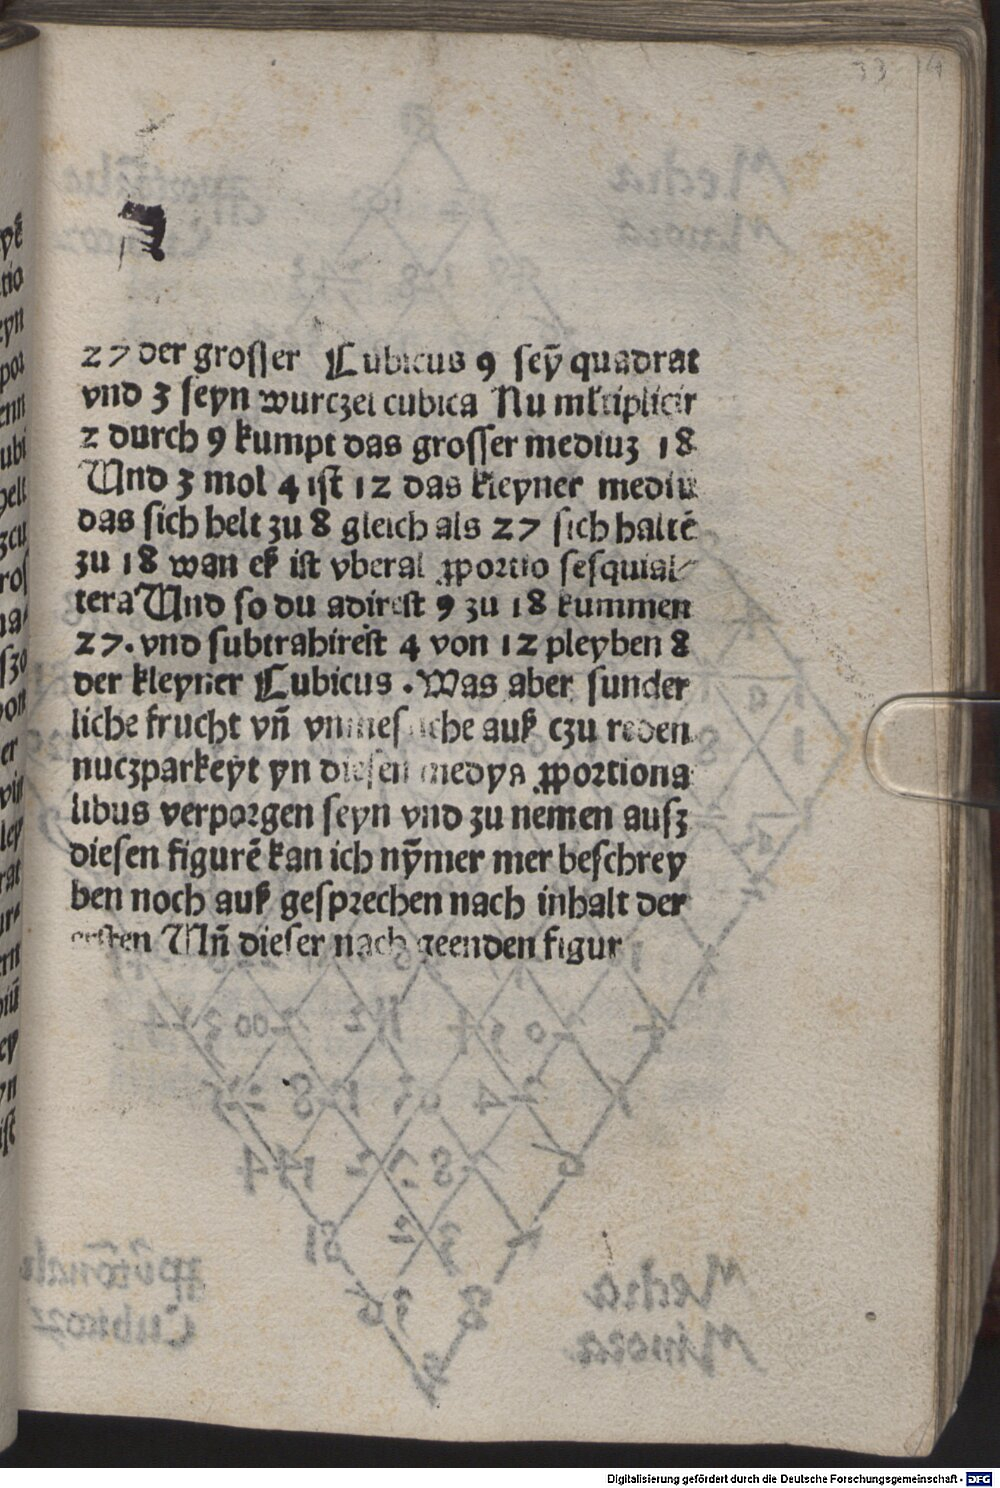 33 14
27 der grosser Cubicus 9 seӯ quadrat
vnd 3 seyn wurczel cubica Nu mltiplicir
2 durch 9 kumpt das grosser mediuz 18
Und 3 mol 4 ist 12 das kleyner mediu
das sich helt zu 8 gleich als 27 sich haltē
zu 18 wan eß ist vberal ꝓportio sesquial⸗
tera Und so du adirest 9 zu 18 kummen
27. vnd subtrahirest 4 von 12 pleyben 8
der kleyner Cubicus . Was aber sunder
liche frucht vn̄ auß czu reden
nuczparkeyt yn diesen medys ꝓportiona
libus verporgen seyn vnd zu nemen ausz
diesen figurē kan ich nӯmer mer beschrey
ben noch auß gesprechen nach inhalt der
ersten Un̄ dieser nach geenden figur
Digitalisierung gefördert durch die Deutsche Forschungsgemeinschaft - DFG